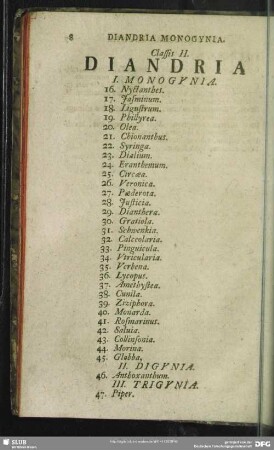 8 DIANDRIA MONOGYNIA.
Classis II.
DIANDRIA
I. MONOGYNIA.
16. Nyctanthes.
17. Jasminum.
18. Ligustrum.
19. Phillyrea.
20. Olea.
21. Chionanthus.
22. Syringa.
23. Dialium.
24. Eranthemum.
25. Circæa.
26. Veronica.
27. Pæderota.
28. Justicia.
29. Dianthera.
30. Gratiola.
31. Schwenkia.
32. Calceolaria.
33. Pinguicula.
34. Utricularia.
35. Verbena.
36. Lycopus.
37. Amethystea.
38. Cunila.
39. Ziziphora.
40. Monarda.
41. Rosmarinus.
42. Salvia.
43. Collinsonia.
44. Morina.
45. Globba,
II. DIGYNIA.
46. Anthoxanthum.
III. TRIGYNIA.
47. Piper.
SLUB
DFG